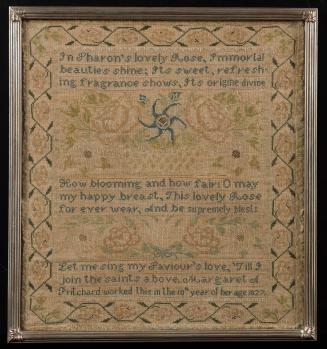 In Sharon's lovely Rose, Immortal
beauties shine; Its sweet, refresh-
ing fragrance shows, Its origine divine
How blooming and how fair: O may
my happy breast, This lovely Rose
for ever wear, And be supremely blest:
Let me sing my Saviour's love, 'Till I
join the saints above. Margaret
Pritchard worked this in the 10th year of her age 1827.